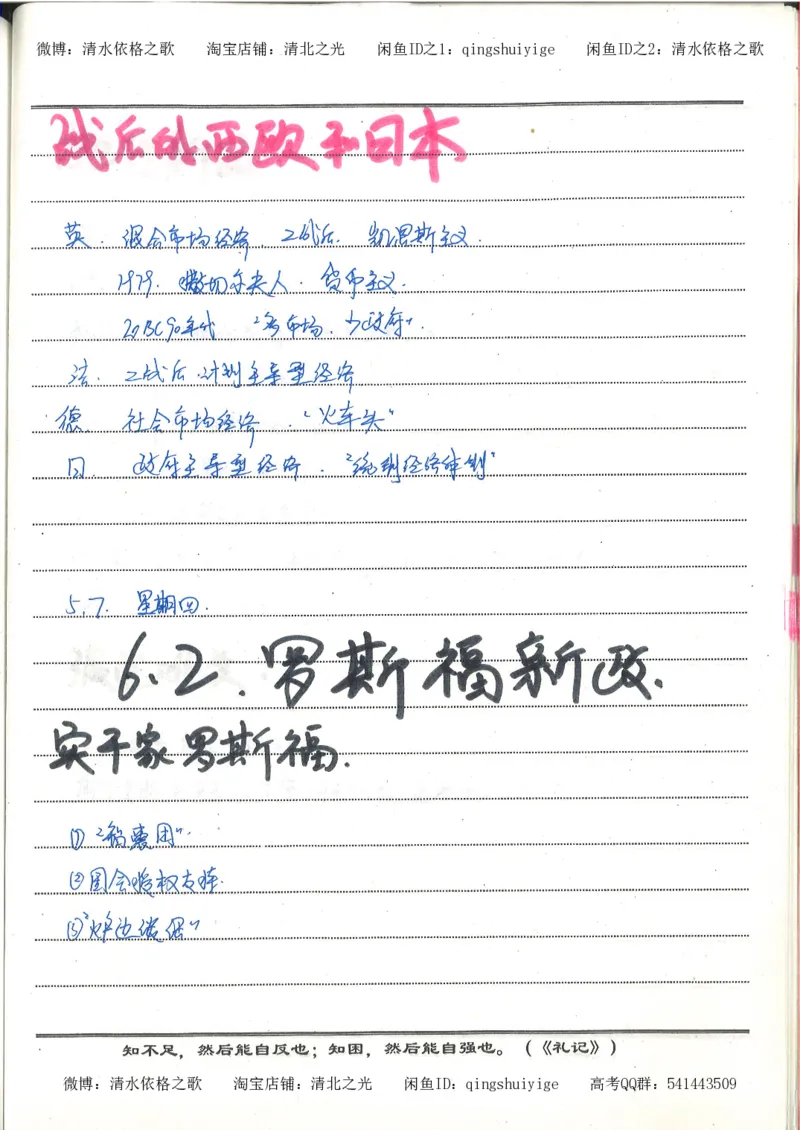 微博：清水依格之歌 淘宝店铺：清北之光 闲鱼ID之1：qingshuiyige 闲鱼ID之2：清水依格之歌
战后的西欧和日本
英. 混合市场经济. 二战后. 凯恩斯主义.
1979. 撒切尔夫人. 货币主义.
20世纪90年代 "多市场，少政府".
法. 二战后.计划主导型经济
德. 社会市场经济. "火车头"
日. 政府主导型经济. "统制经济体制"
5.7. 星期四.
6.2.罗斯福新政.
实干家罗斯福.
① "智囊团".
②国会授权支持.
③"炉边谈话"
知不足，然后能自反也；知困，然后能自强也。（《礼记》）
微博：清水依格之歌 淘宝店铺：清北之光 闲鱼ID：qingshuiyige 高考QQ群：541443509